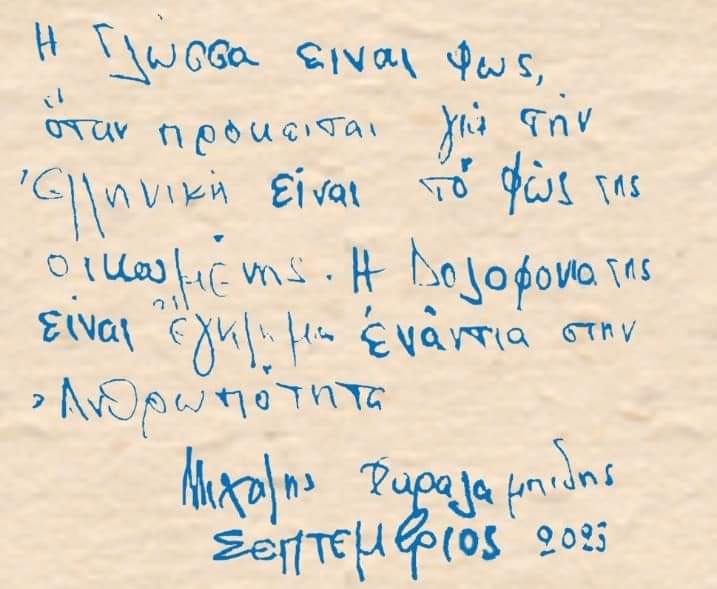 Η Γλώσσα ειναι φως,
όταν προκειται γιά την
Ἑλληνική είναι τό φώς της
οικουμένης. Η Δολοφονια της
είναι ἔγκλημα ἐνάντια στην
Ἀνθρωπότητα
Μιχαλης Χαραλαμπιδης
Σεπτεμβριος 2023